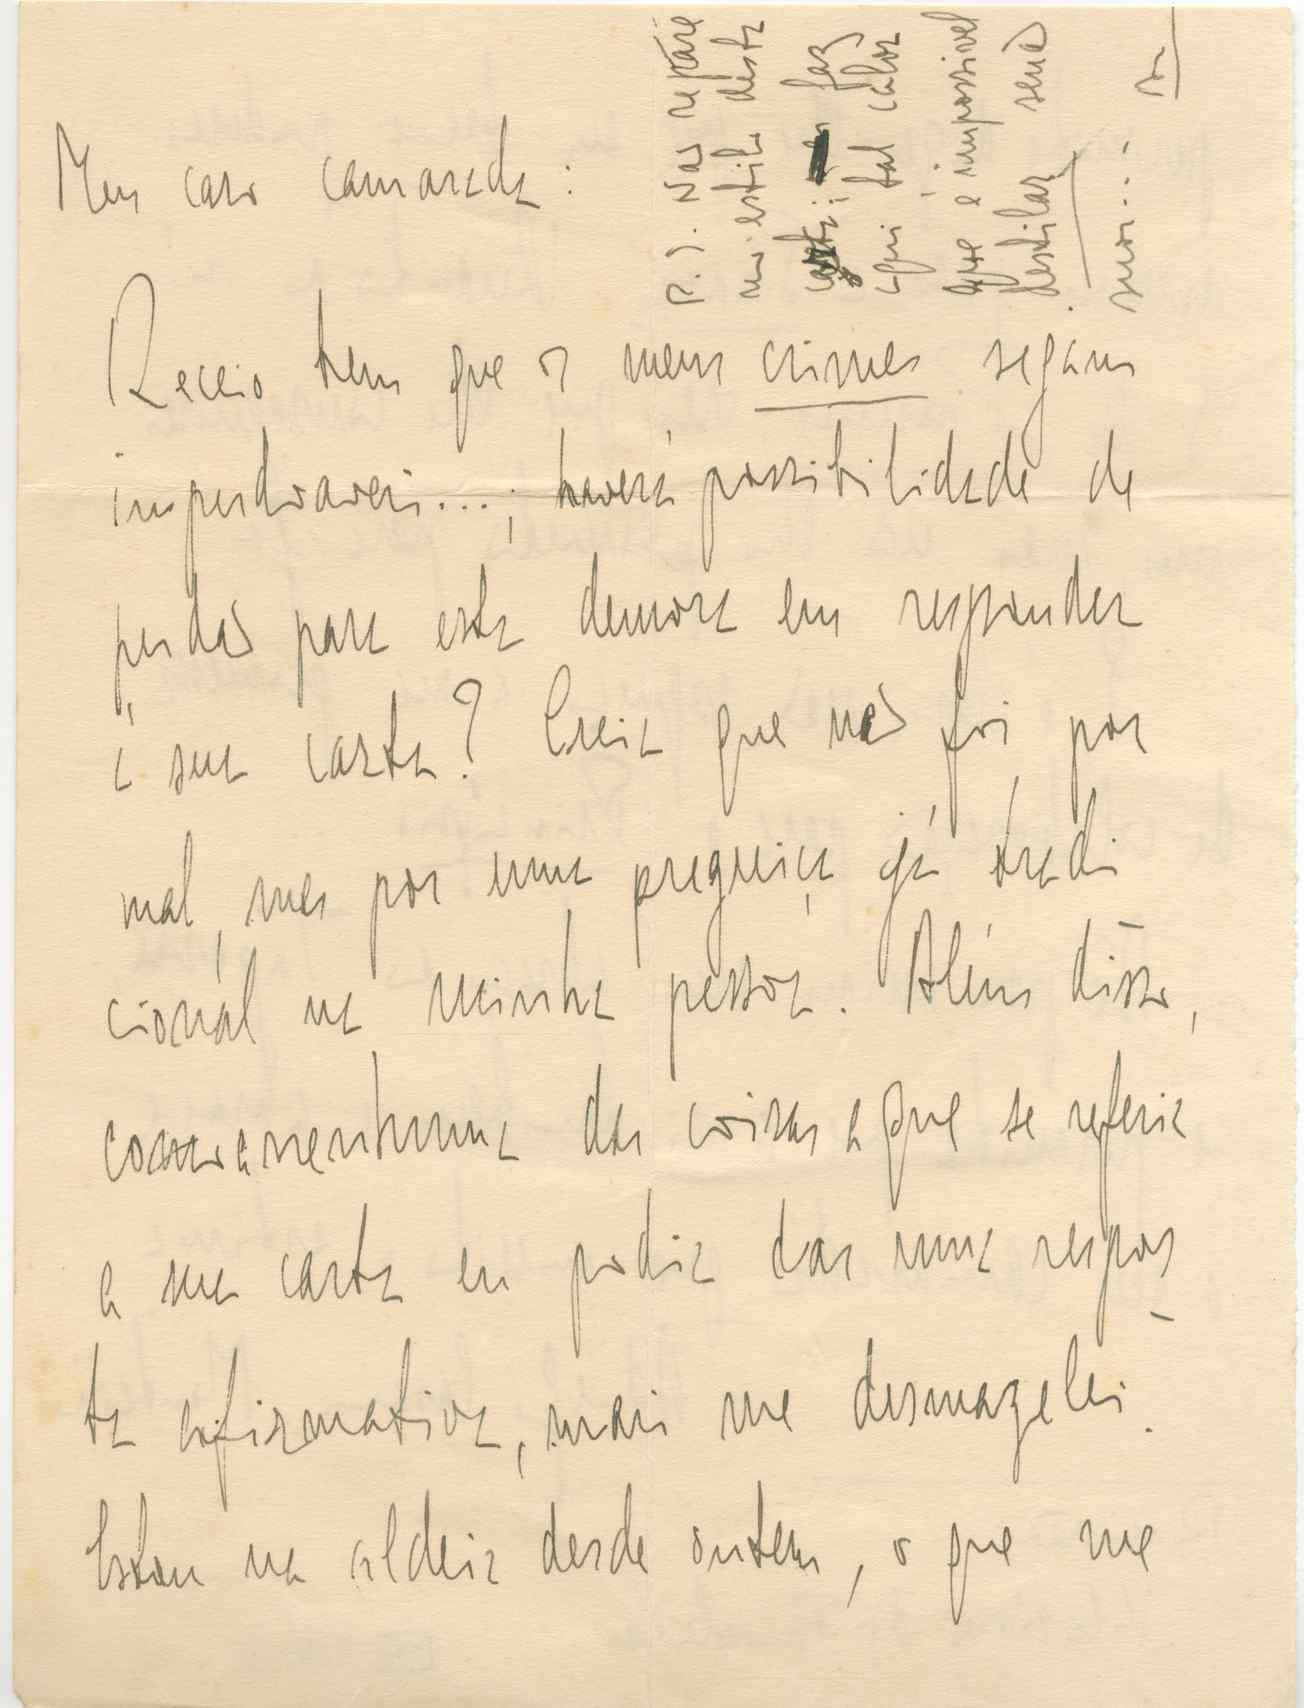 Meu caro camarada:
Receio bem que os meus crimes sejam
imperdoaveis...; haverá possibilidade de
perdão para esta demora em responder
á sua carta? Creia que não foi por
mal, mas por uma preguiça já tradi
cional na minha pessoa. Além disso,
como a nenhuma das coisas a que se referia
a sua carta eu podia dar uma respos
ta afirmativa, mais me desmazelei.
Estou na aldeia desde ontem, o que me
P.S. Não repare
no estilo desta
carta; faz
aqui tal calor
que é impossivel
destilar senão
suor...